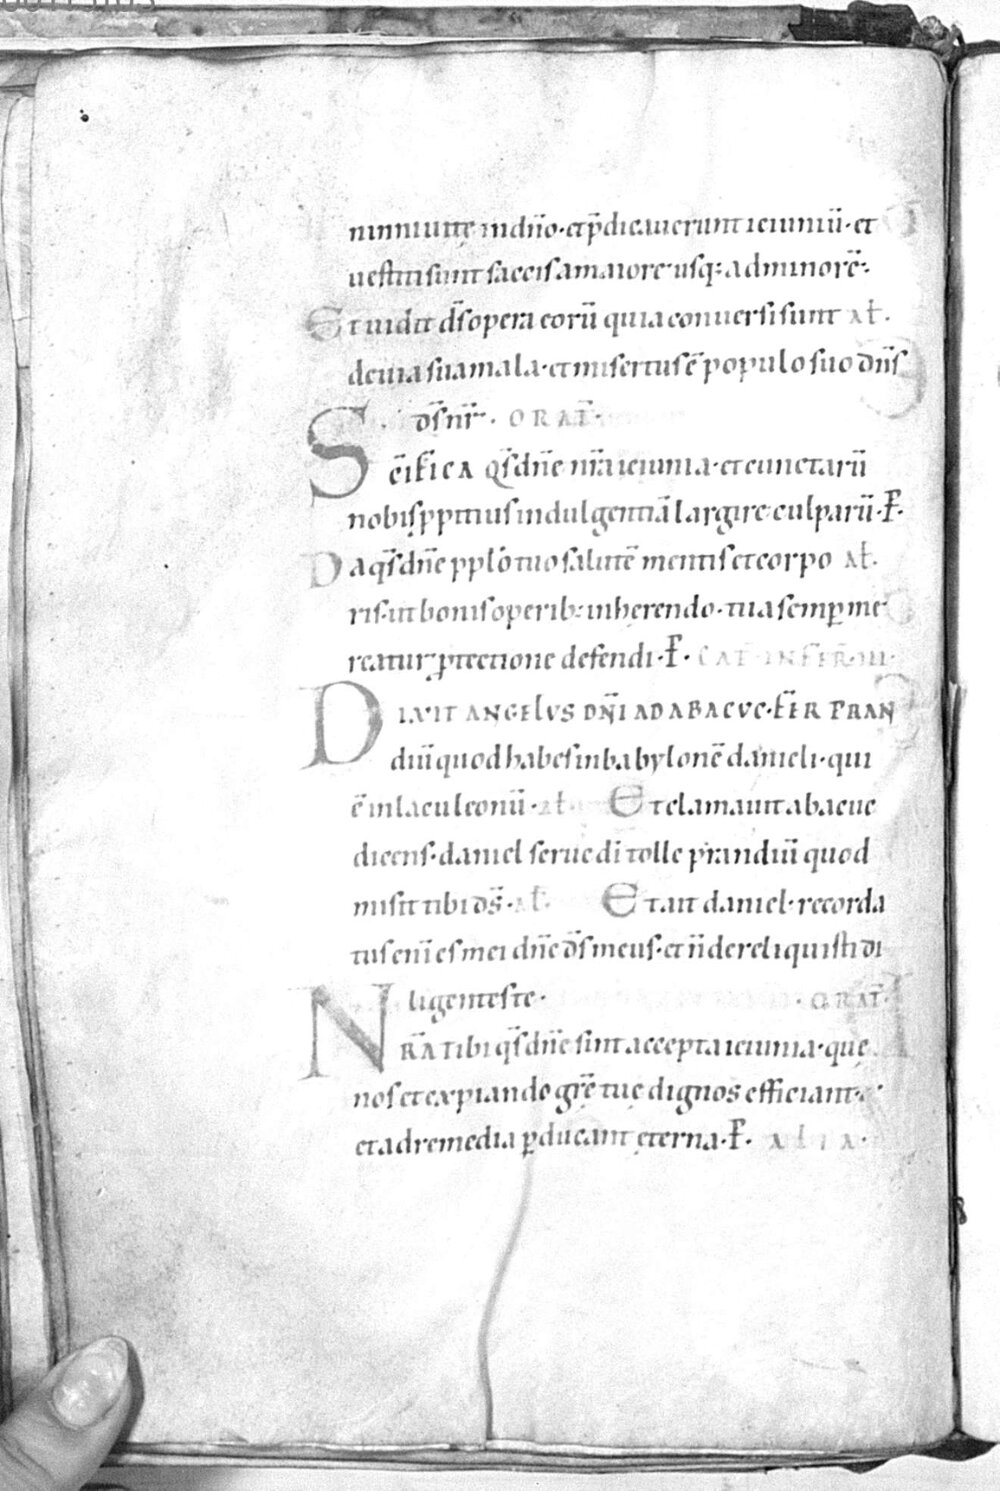 niniuitę in dño · et p̄dicauerunt ieiuniū · et
uestiti sunt saccis a maiore usq; ad minorē ·
Et uidit d̄s opera eorū quia conuersi sunt ał.
de uia sua mala · et misertus ē populo suo dn̄s
d̄s nr̄ · ORAT̄ ·
Sc̄ifica q̄s dn̄e nr̄a ieiunia · et cunctarū
nobis ppitius indulgentiā largire culparū · P̄ ·
Da q̄s dn̄e pplo tuo salutē mentis et corpo ał.
ris · ut bonis operib; inherendo · tua semp̄ me
reatur ptectione defendi · P̄ · CAT̄ · IN FER̄ · III ·
DIXIT ANGELVS DN̄I AD ABACVC · FER PRAN
diū quod habes in babylonē danieli · qui
ē in lacu leonū · ał. Et clamauit abacuc
dicens · daniel serue dī tolle prandiū quod
misit tibi d̄s · ał. Et ait daniel · recorda
tus enī es mei dn̄e d̄s meus · et n̄ dereliquisti di
ligentes te · ORAT̄ ·
NR̄A tibi q̄s dn̄e sint accepta ieiunia · que
nos et expiando gr̄e tuę dignos efficiant ·
et ad remedia p̄ducant ęterna · P̄ · ALIA ·